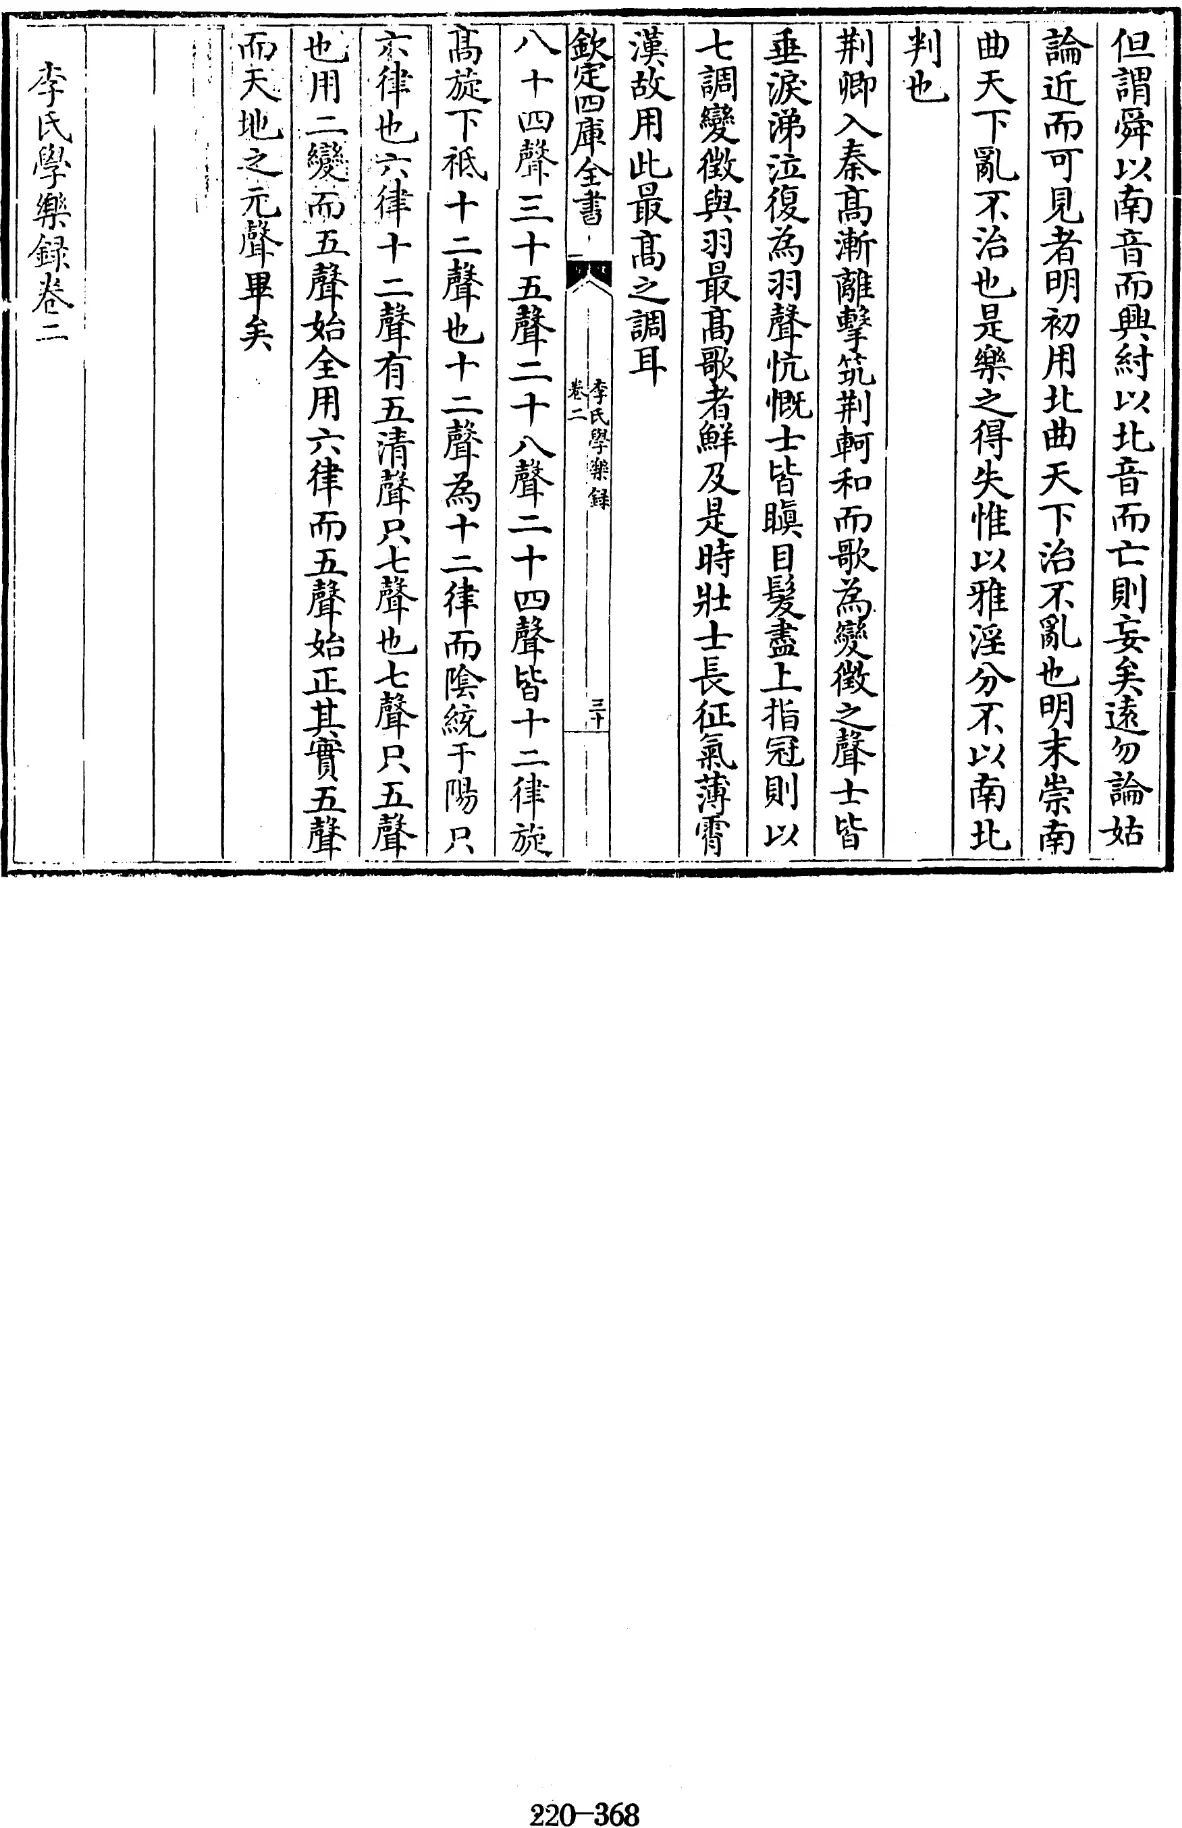 但謂舜以南音而興紂以北音而亡則妄矣遠勿論姑
論近而可見者明初用北曲天下治不亂也明末崇南
曲天下亂不治也是樂之得失惟以雅淫分不以南北
判也
荆卿入秦髙漸離擊筑荆軻和而歌為變徵之聲士皆
垂淚涕泣復為羽聲忼慨士皆瞋目髮盡上指冠則以
七調變徵與羽最髙歌者鮮及是時壯士長征氣薄霄
漢故用此最髙之調耳
欽定四庫全書
李氏學樂録
卷二
三十
八十四聲三十五聲二十八聲二十四聲皆十二律旋
髙旋下祗十二聲也十二聲為十二律而陰統于陽只
六律也六律十二聲有五清聲只七聲也七聲只五聲
也用二變而五聲始全用六律而五聲始正其實五聲
而天地之元聲畢矣
李氏學樂録卷二
220-368